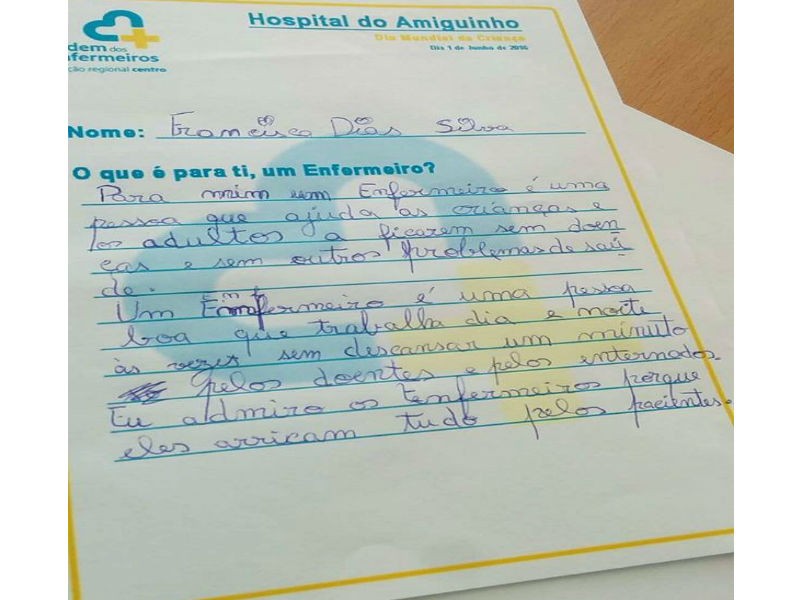 Hospital do Amiguinho
Dia Mundial da Criança
Dia 1 de Junho de 2016
dem dos
fermeiros
ção regional centro
Nome: Francisca Dias Silva
O que é para ti, um Enfermeiro?
Para mim um Enfermeiro é uma
pessoa que ajuda as crianças e
os adultos a ficarem sem doen
ças e sem outros problemas de saú
de.
Um Enfermeiro é uma pessoa
boa que trabalha dia e noite
às vezes sem descansar um minuto
pelos doentes e pelos internados.
Eu admiro os Enfermeiros porque
eles arricam tudo pelos pacientes.